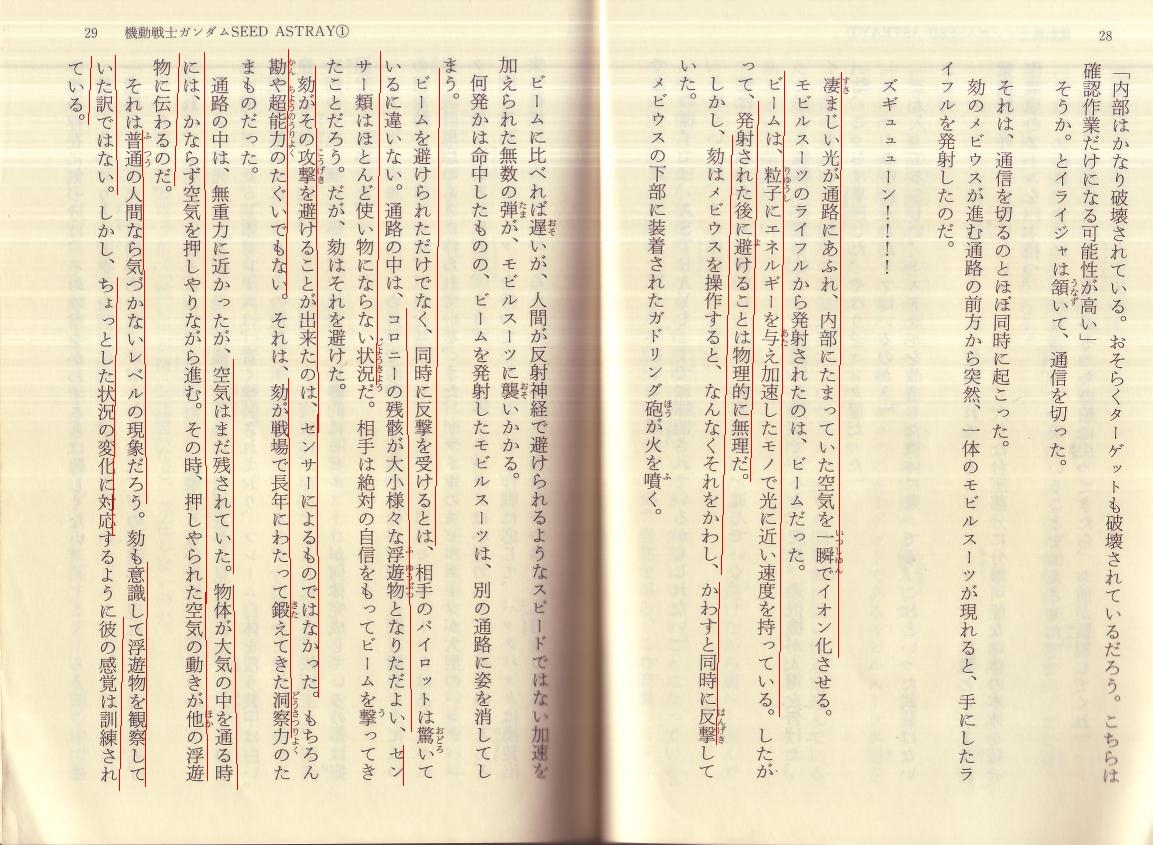 28
「内部はかなり破壊されている。おそらくターゲットも破壊されているだろう。こちらは
確認作業だけになる可能性が高い」
そうか。とイライジャは頷いて、通信を切った。
それは、通信を切るのとほぼ同時に起こった。
劾のメビウスが進む通路の前方から突然、一体のモビルスーツが現れると、手にしたラ
イフルを発射したのだ。
ズギュューン!!!!
凄まじい光が通路にあふれ、内部にたまっていた空気を一瞬でイオン化させる。
モビルスーツのライフルから発射されたのは、ビームだった。
ビームは、粒子にエネルギーを与え加速したモノで光に近い速度を持っている。したが
って、発射された後に避けることは物理的に無理だ。
しかし、劾はメビウスを操作すると、なんなくそれをかわし、かわすと同時に反撃して
いた。
メビウスの下部に装着されたガドリング砲が火を噴く。
29 機動戦士ガンダムSEED ASTRAY①
ビームに比べれば遅いが、人間が反射神経で避けられるようなスピードではない加速を
加えられた無数の弾が、モビルスーツに襲いかかる。
何発かは命中したものの、ビームを発射したモビルスーツは、別の通路に姿を消してし
まう。
ビームを避けられただけでなく、同時に反撃を受けるとは、相手のパイロットは驚いて
いるに違いない。通路の中は、コロニーの残骸が大小様々な浮遊物となりただよい、セン
サー類はほとんど使い物にならない状況だ。相手は絶対の自信をもってビームを撃ってき
たことだろう。だが、劾はそれを避けた。
劾がその攻撃を避けることが出来たのは、センサーによるものではなかった。もちろん
勘や超能力のたぐいでもない。それは、劾が戦場で長年にわたって鍛えてきた洞察力のた
まものだった。
通路の中は、無重力に近かったが、空気はまだ残されていた。物体が大気の中を通る時
には、かならず空気を押しやりながら進む。その時、押しやられた空気の動きが他の浮遊
物に伝わるのだ。
それは普通の人間なら気づかないレベルの現象だろう。劾も意識して浮遊物を観察して
いた訳ではない。しかし、ちょっとした状況の変化に対応するように彼の感覚は訓練され
ている。